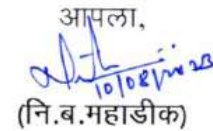 आपला,
10/08/2023
(नि.ब.महाडीक)